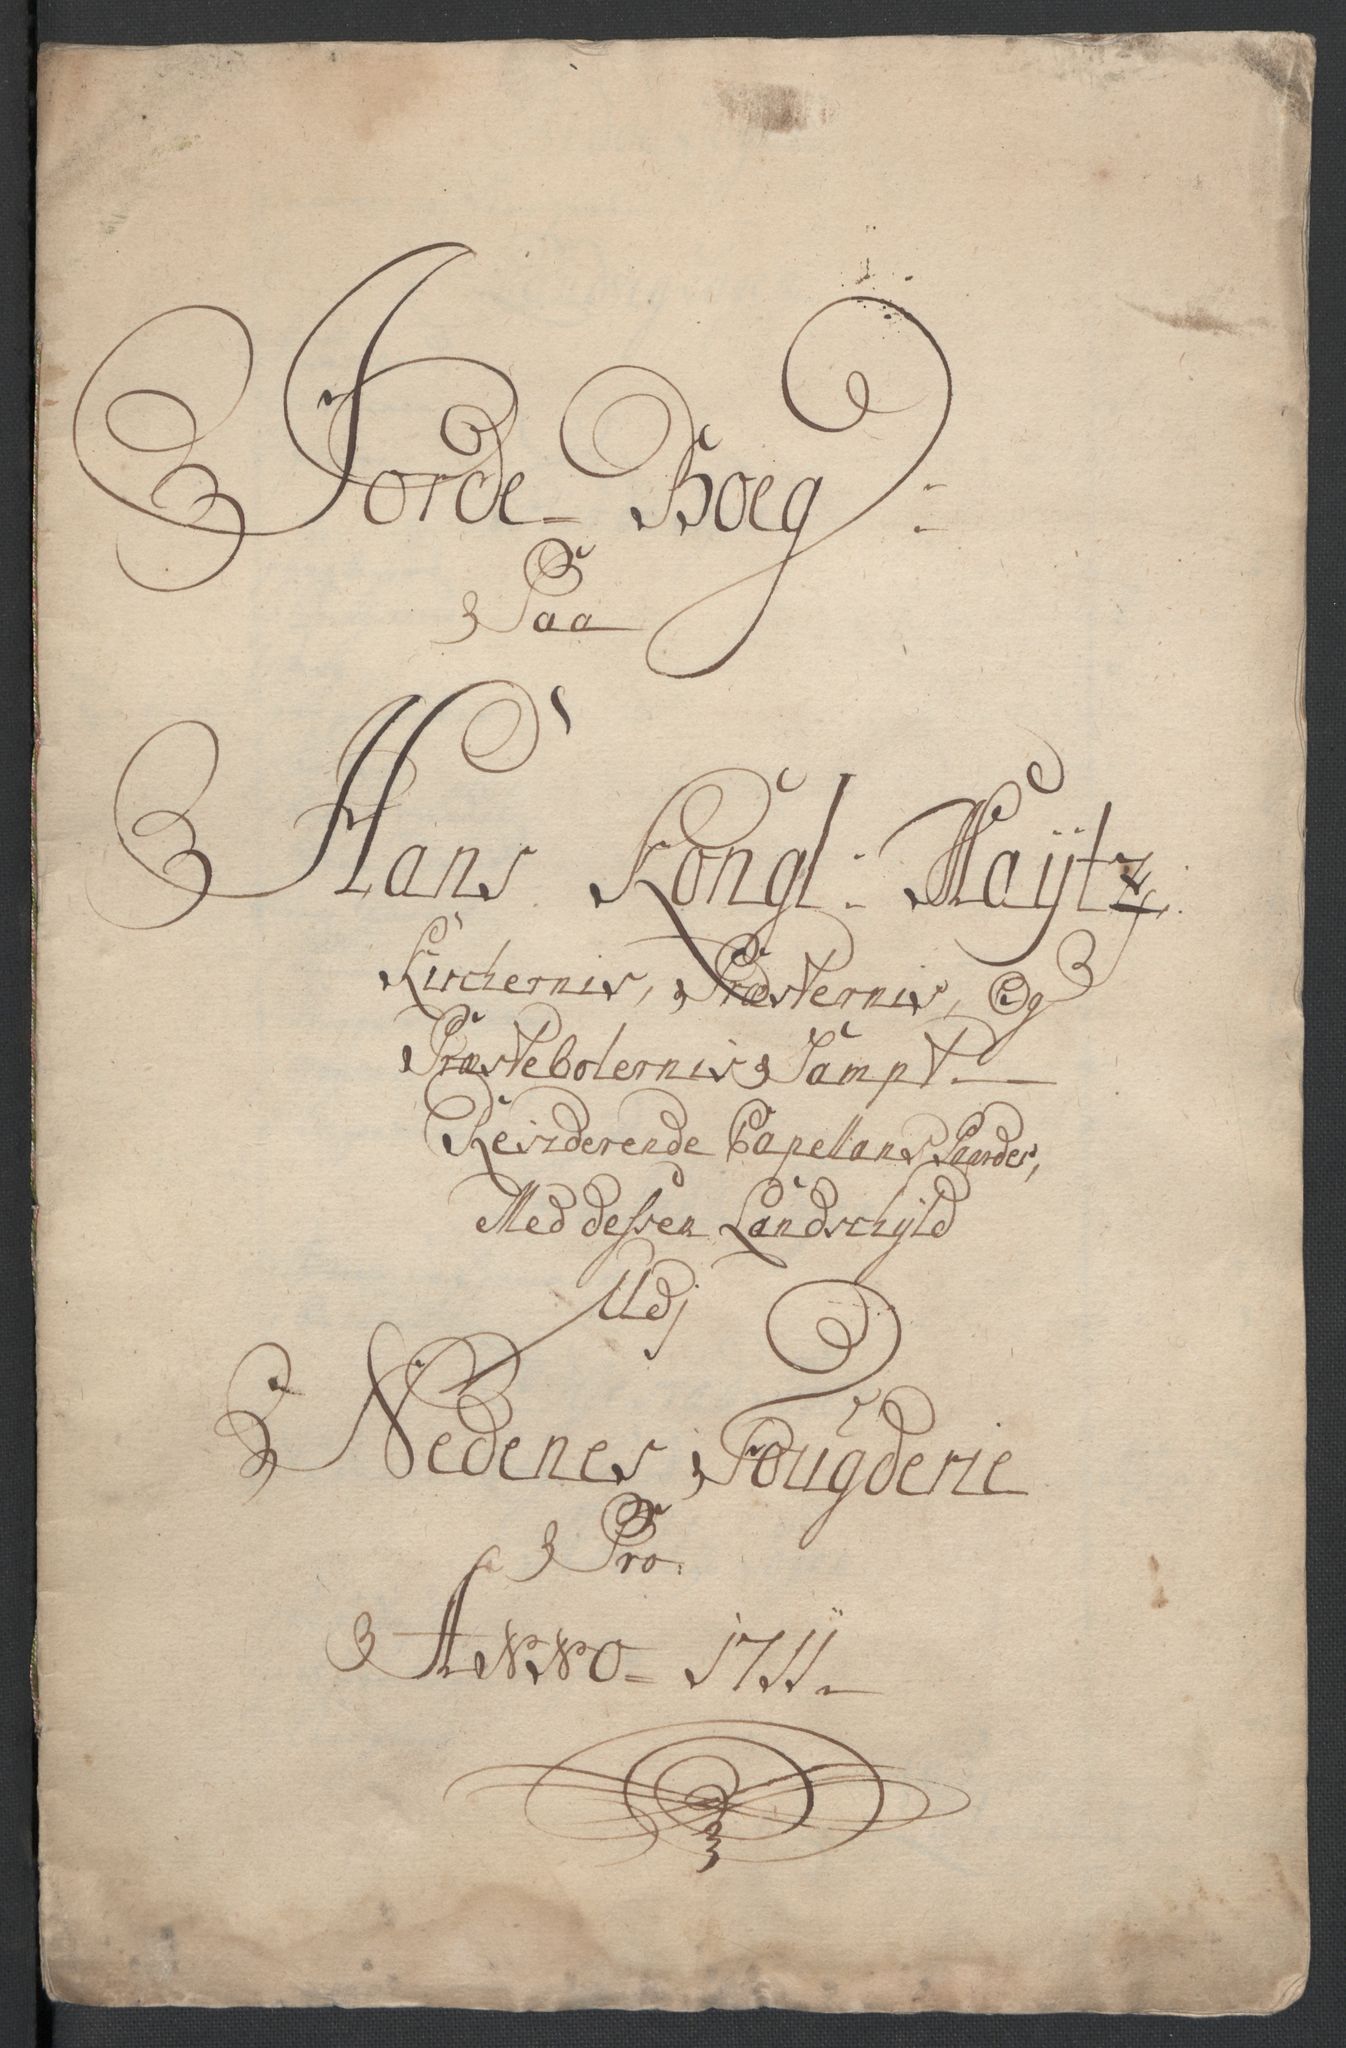 Jorde-Boeg:
Paa
Hans Kongl: Maÿtz
Kirchernis, Præsternis, Og
Præstebolernis Sampt
Reisderende Capellans Gaardes,
Med dessen Landschyld
Udj
Nedenes Fougderie
Pro.
ANNO 1711.